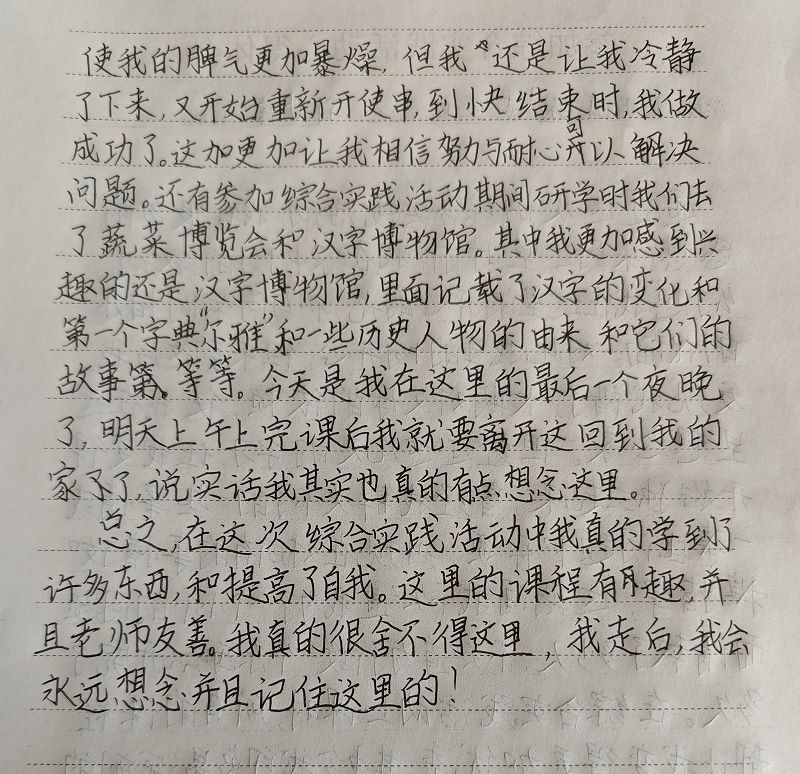 使我的脾气更加暴燥,但我还是让我冷静
了下来,又开始重新开使串,到快结束时,我做
成功了。这加更加让我相信努力与耐心可以解决
问题。还有参加综合实践活动期间研学时我们去
了蔬菜博览会和汉字博物馆。其中我更加感到兴
趣的还是汉字博物馆,里面记载了汉字的变化和
第一个字典“尔雅”,和一些历史人物的由来和它们的
故事等。等等。今天是我在这里的最后一个夜晚
了,明天上午上完课后我就要离开这回到我的
家了,说实话我其实也真的有点想念这里。
总之,在这次综合实践活动中我真的学到了
许多东西,和提高了自我。这里的课程有趣,并
且老师友善。我真的很舍不得这里,我走后,我会
永远想念并且记住这里的!